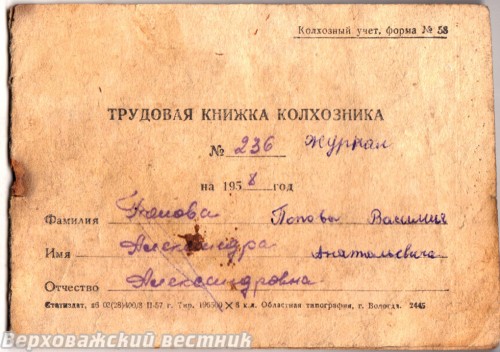 Колхозный учет, форма № 58
ТРУДОВАЯ КНИЖКА КОЛХОЗНИКА
№ 236 Журнал
на 1958 год
Фамилия Попова Василия
Имя Александра Анатольевича
Отчество Александровна
Статиздат, зб 02(28)400/3 П-57 г. Тир. 195500 × 8 к.л. Областная типография, г. Вологда. 2445
Верховажский вестник